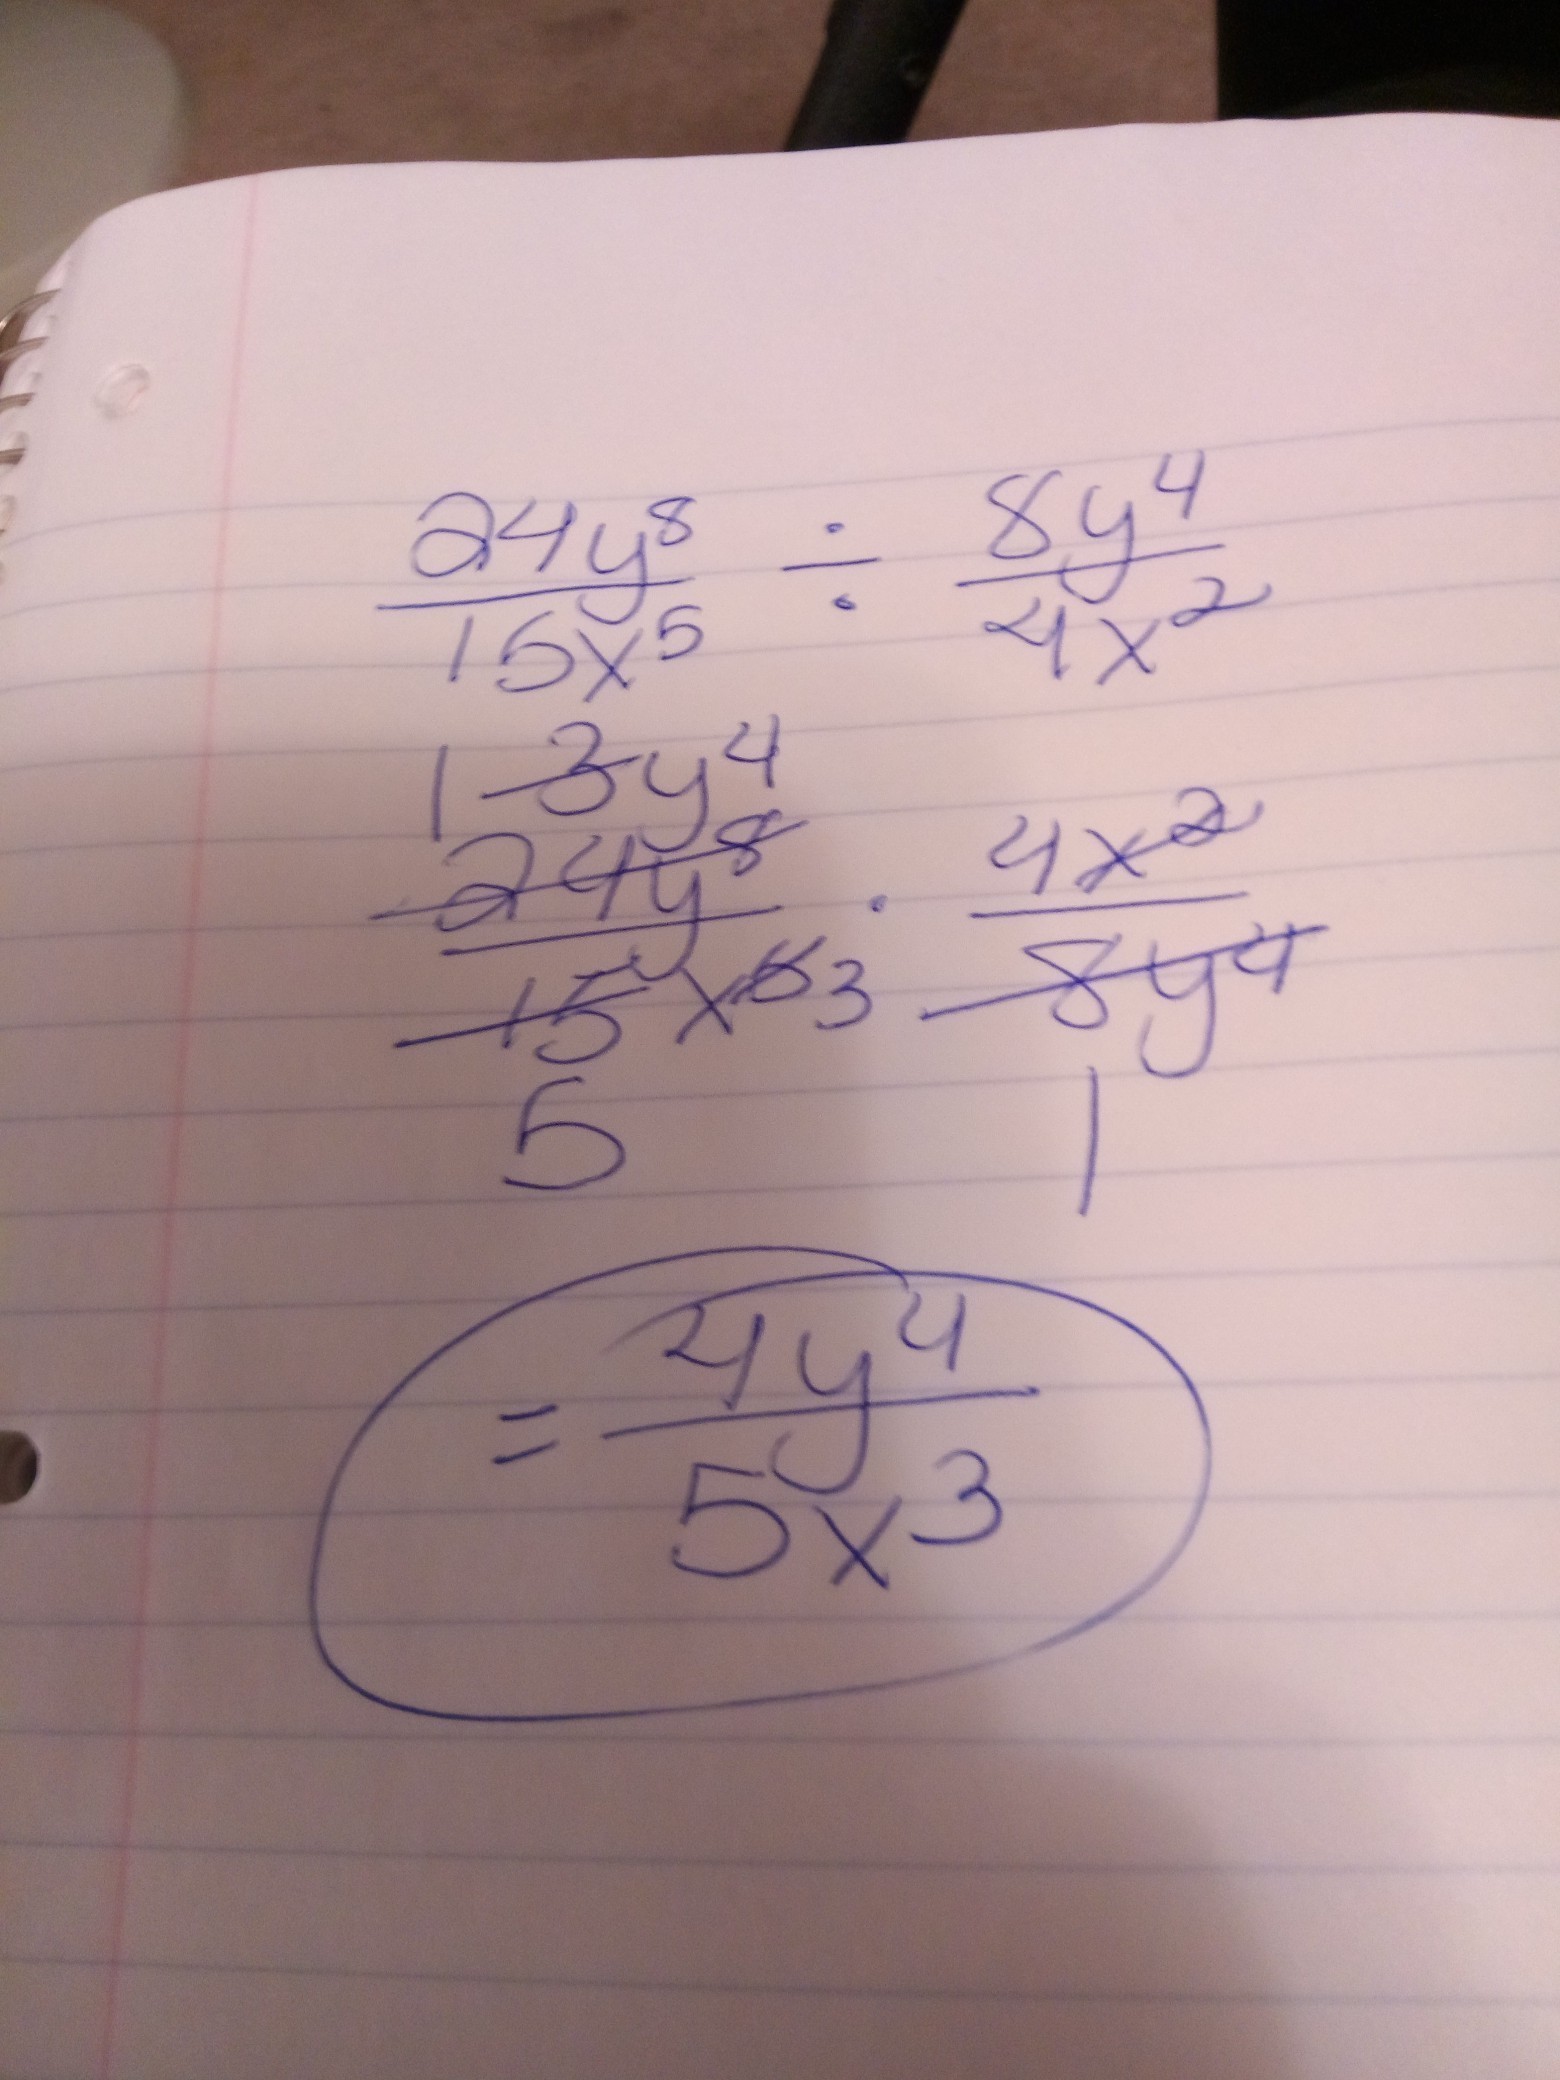 24y⁸/15x⁵ ÷ 8y⁴/4x²
1 3y⁴
24y⁸/15x⁵ 3 · 4x²/8y⁴
5 1
= 4y⁴/5x³